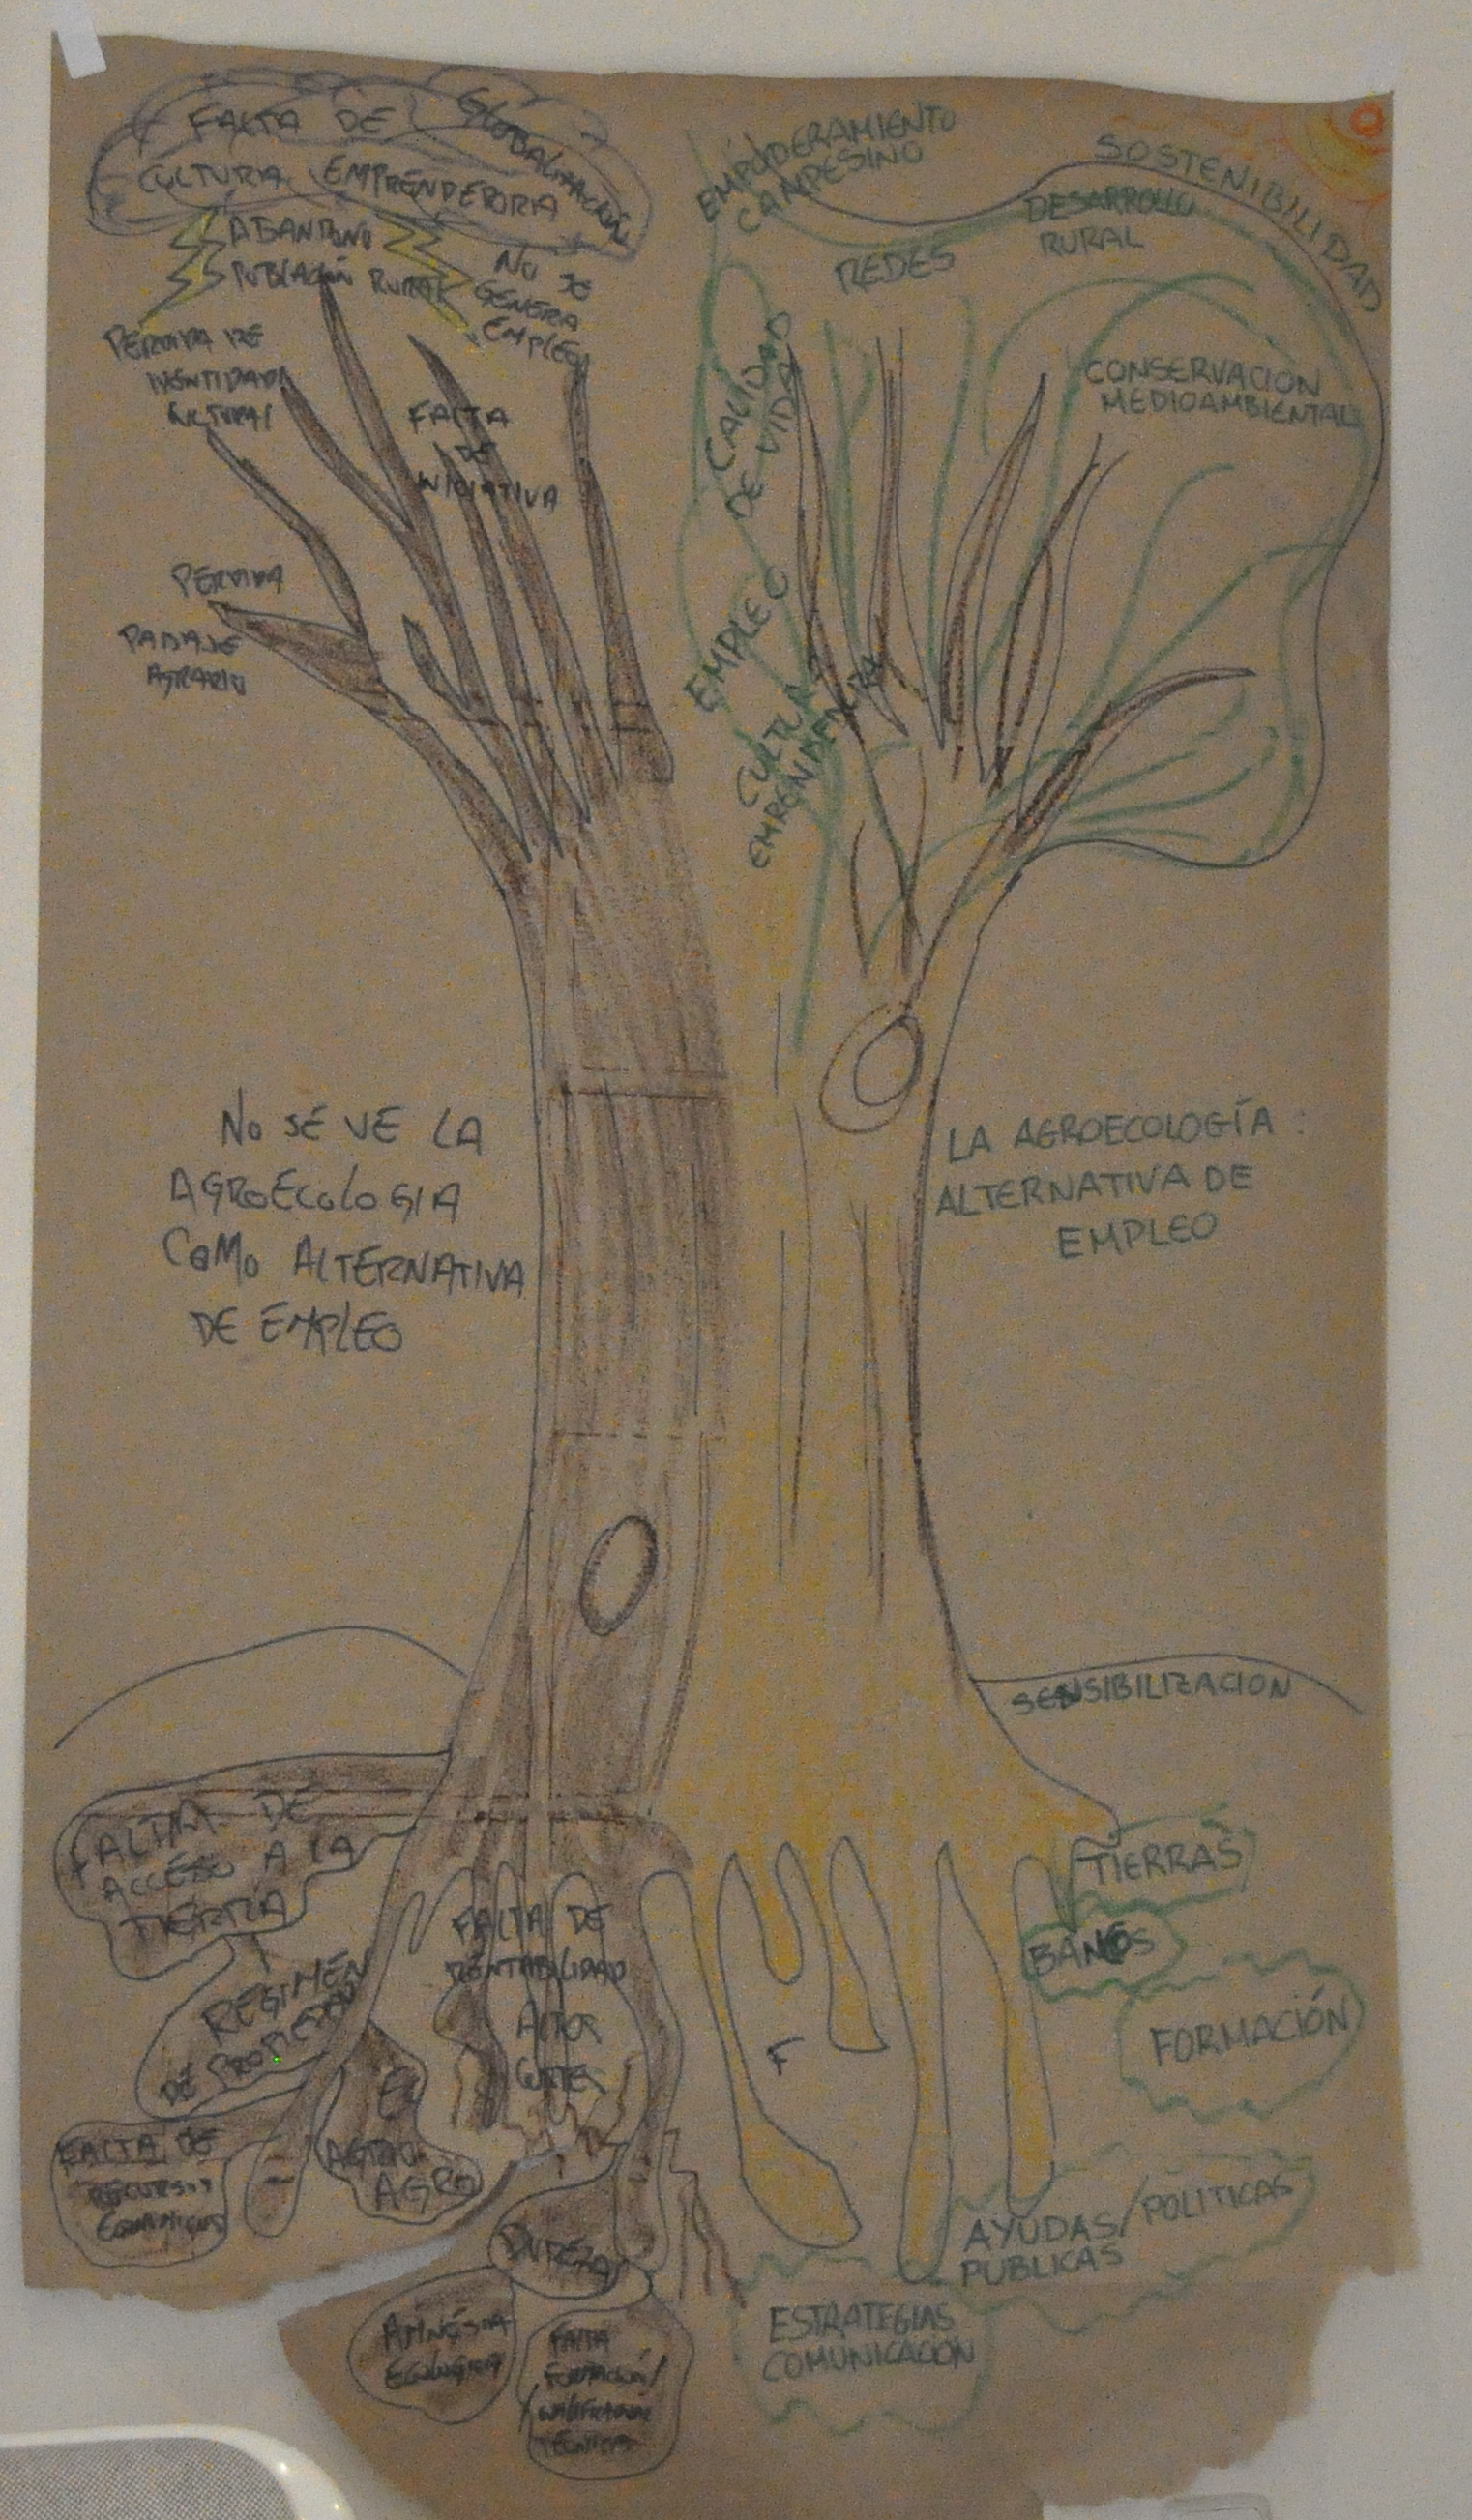 FALTA DE
CULTURA EMPRENDEDORA
GLOBALIZACIÓN
ABANDONO
POBLACIÓN RURAL
NO SE
GENERA
EMPLEO
PERDIDA DE
IDENTIDAD
CULTURAL
FALTA
DE
INICIATIVA
PERDIDA
PAISAJE
AGRARIO
NO SE VE LA
AGROECOLOGIA
COMO ALTERNATIVA
DE EMPLEO
FALTA DE
ACCESO A LA
TIERRA
REGIMEN
DE PROPIEDAD
FALTA DE
RECURSOS
ECONOMICOS
FALTA DE
RENTABILIDAD
AGRO
DINERO
AMNESIA
ECOLOGICA
FALTA
FORMACIÓN/
TECNICA
EMPODERAMIENTO
CAMPESINO
SOSTENIBILIDAD
DESARROLLO
RURAL
REDES
CALIDAD
DE VIDA
CONSERVACION
MEDIOAMBIENTAL
EMPLEO
CULTURA
EMRENDEDORA
LA AGROECOLOGÍA :
ALTERNATIVA DE
EMPLEO
SENSIBILIZACION
TIERRAS
BANCOS
FORMACIÓN
F
AYUDAS/POLITICAS
PUBLICAS
ESTRATEGIAS
COMUNICACIÓN